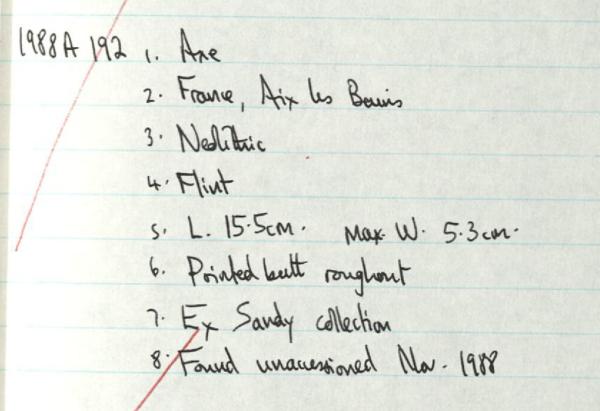 1988A 192 1. Axe
2. France, Aix les Bains
3. Neolithic
4. Flint
5. L. 15.5cm. Max. W. 5.3cm.
6. Pointed butt roughout
7. Ex Sandy collection
8. Found unaccessioned Nov. 1988